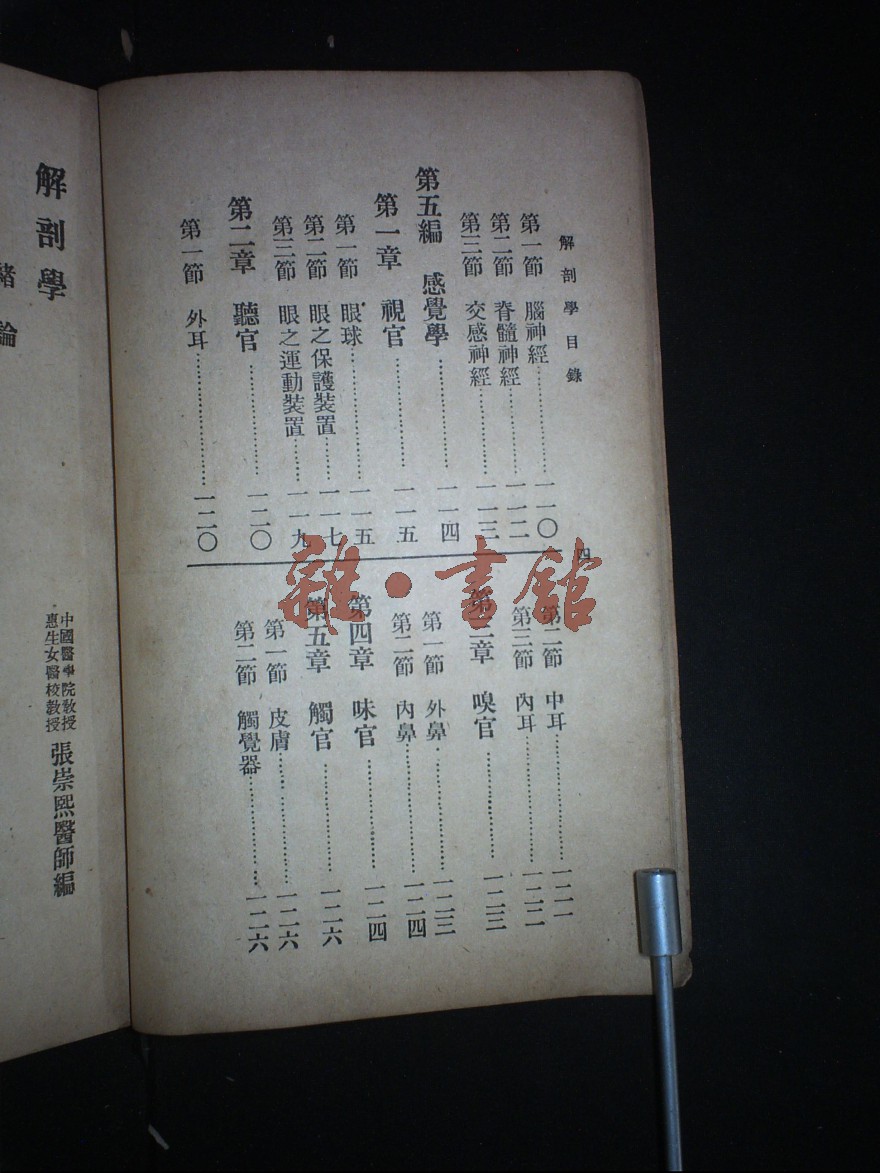 解剖學目錄
四
第一節 腦神經……一一〇
第二節 脊髓神經……一一二
第三節 交感神經……一一三
第五編 感覺學……一一四
第一章 視官……一一五
第一節 眼球……一一五
第二節 眼之保護裝置……一一七
第三節 眼之運動裝置……一一九
第二章 聽官……一二〇
第一節 外耳……一二〇
第二節 中耳……一二一
第三節 內耳……一二二
第三章 嗅官……一二三
第一節 外鼻……一二三
第二節 內鼻……一二四
第四章 味官……一二四
第五章 觸官……一二六
第一節 皮膚……一二六
第二節 觸覺器……一二六
雜·書館
解剖學
中國醫學院教授
惠生女醫校教授
張崇熙醫師編
緒論